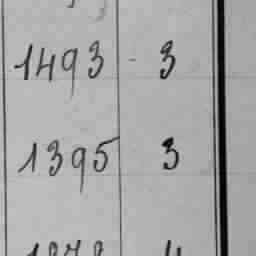 1493 3
1395 3